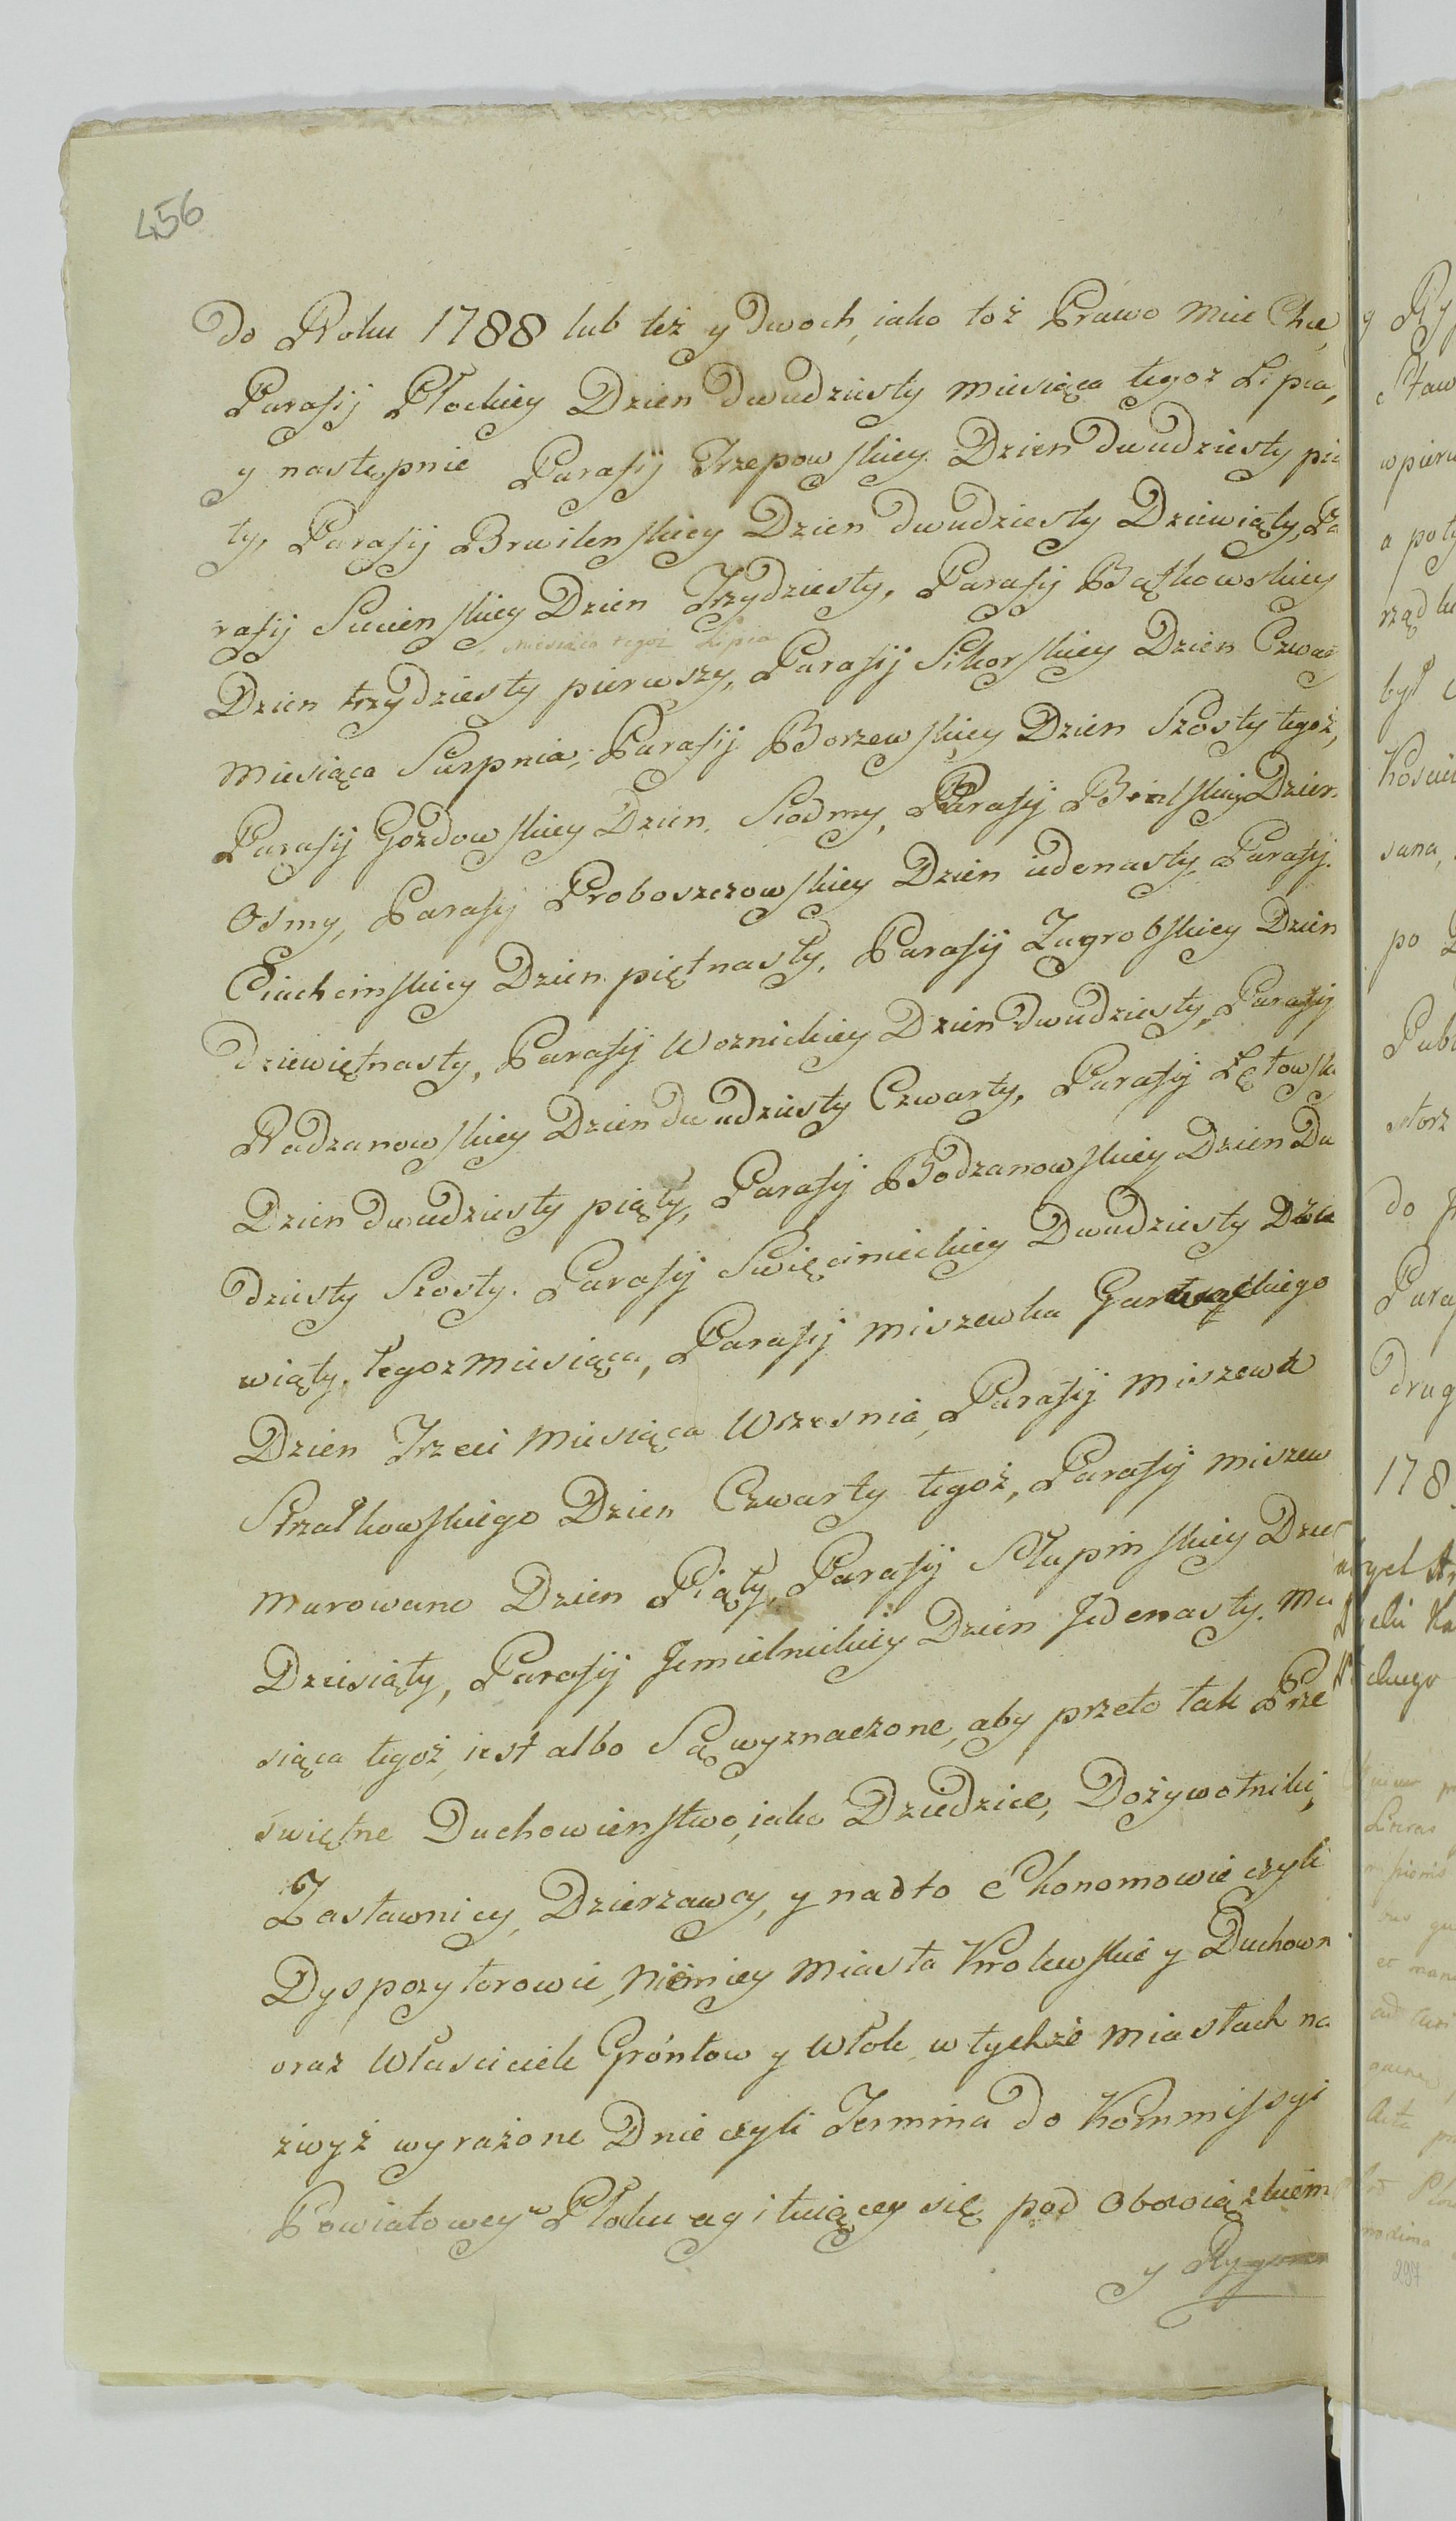 456
Do Roku 1788 lub też y dwoch, iako toż Prawo mie Chce,
Parafij Płockiey Dzien dwudziesty miesiąca tegoż Lipca,
y nastepnie Parafij Trzepowskiey Dzien dwudziesty pią
ty, Parafij Brwilenskiey Dzien dwudziesty Dziewiąty, Pa
rafij Sicienskiey Dzien Trzydziesty, Parafij Bąłkowskiey
miesiąca tegoż Lipca
Dzien trzydziesty pierwszy, Parafij Sikorskiey Dzien Czwar
miesiąca Sierpnia, Parafij Borzewskiey Dzien Szosty tegoż,
Parafij Gozdowskiey Dzien Siodmy, Parafij Bielskiey Dzien
Osmy, Parafij Proboszczowskiey Dzien iedenasty, Parafij
Ciachcinskiey Dzien piętnasty, Parafij Zagrobskiey Dzien
dziewiętnasty, Parafij Woznickiey Dzien dwudziesty, Parafij
Radzanowskiey Dzien dwudziesty Czwarty, Parafij Łętowsk
Dzien dwudziesty piąty, Parafij Bodzanowskiey Dzien Dw
dziesty Szosty. Parafij Swięcinieckiey Dwudziesty Dzie
wiąty, tegoz miesiąca, Parafij miszewka Garwackiego
Dzien Trzeci miesiąca Wrzesnia, Parafij miszewk
Strzałkowskiego Dzien Czwarty tegoż, Parafij miszew
murowane Dzien Piąty, Parafij Słupinskiey Dzie
Dziesiąty, Parafij Jemielnickiey Dzien Jedenasty. mie
siąca tegoż, iest albo Są wyznaczone, aby przeto tak Prze
świętne Duchowienstwo, iako Dziedzice, Dożywotniki,
Zastawnicy, Dzierzawcy, y nadto Ekonomowie czyli
Dyspozytorowie, niemniey miasta Krolewskie y Duchown
oraz Własciciele Gróntow y Włok w tychże miastach na
zwyż wyrażone Dnie czyli Termina do Kommissyi
Powiatowey w Płocku agituiącey się pod Obowiązkiem
y Rygorem
y Ry
Staw
w pierw
a poty
rząd
był
Kościel
sana,
po
Pub
do
Para
drug
178
297